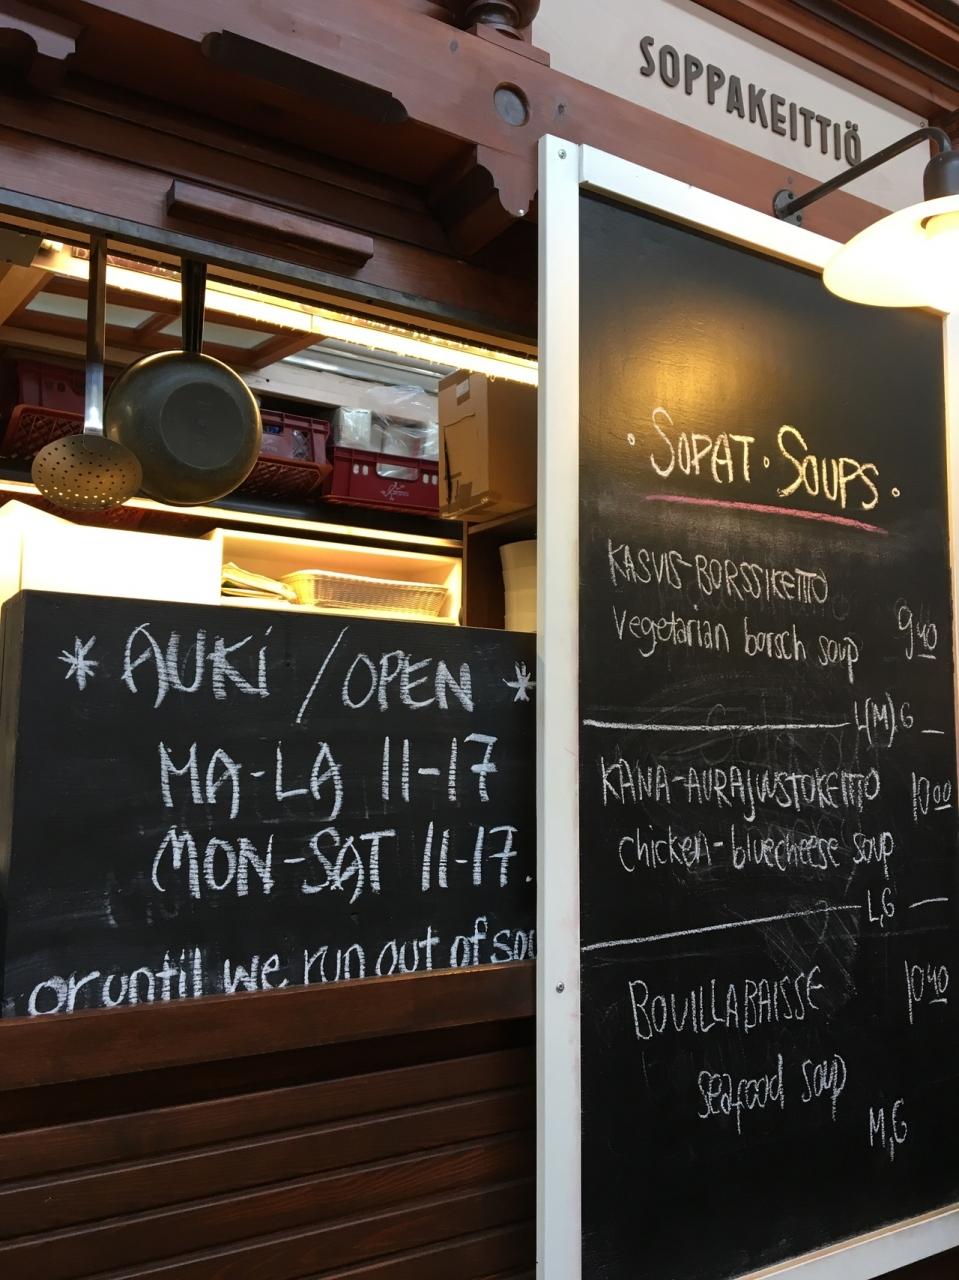 SOPPAKEITTIÖ
* AUKi / OPEN *
MA-LA 11-17
MON-SAT 11-17.
or until we run out of
• SOPAT • SOUPS •
KASVIS-BORSSIKEITTO
vegetarian borsch soup 9 40
L(M),G
KANA-AURAJUUSTOKEITTO 10 00
chicken-bluecheese soup
L,G
BOUILLABAISSE 10 40
seafood soup
M,G